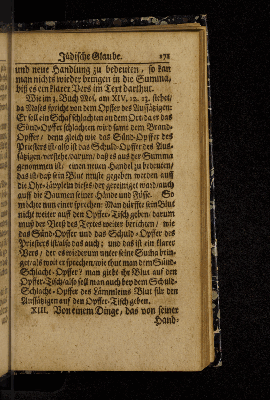 Jüdische Glaube. 171
und neue Handlung zu bedeuten, so kan
man nichts wieder bringen in die Summa,
biß es ein klarer Vers im Text darthut.
Wie im 3. Buch Mos. am XIV, 12. 13. stehet,
da Moses spricht von dem Opffer des Aussätzigen:
Er soll ein Schaf schlachten an dem Ort da er das
Sünd-Opffer schlachten wird samt dem Brand-
Opffer, denn gleich wie das Sünd-Opffer des
Priesters ist, also ist das Schuld-Opffer des Aus-
sätzigen, verstehe, darum, daß es aus der Summa
genommen ist, einen neuen Handel zu bedeuten,
das ist, daß sein Blut muste gegeben werden auff
die Ohr-läpplein dieses der gereiniget ward, auch
auff den Daumen seiner Hände und Füsse. So
möchte nun einer sprechen: Man dürffte sein Blut
nicht weiter auff den Opffer-Tisch geben, darum
muß der Verß des Textes weiter berichten, wie
das Sünd-Opffer und das Schuld-Opffer des
Priesters ist, also das auch; und das ist ein klarer
Vers, der es wiederum unter seine Sucha brin-
get, als wolt er sprechen, wie thut man dem Sünd-
Schlacht-Opffer? man giebt ihr Blut auf den
Opffer-Tisch, also soll man auch bey dem Schuld-
Schlacht-Opffer des Lämmleins Blut für den
Aussätzigen auf den Opffer-Tisch geben.
XIII. Von einem Dinge, das von seiner
Hand-